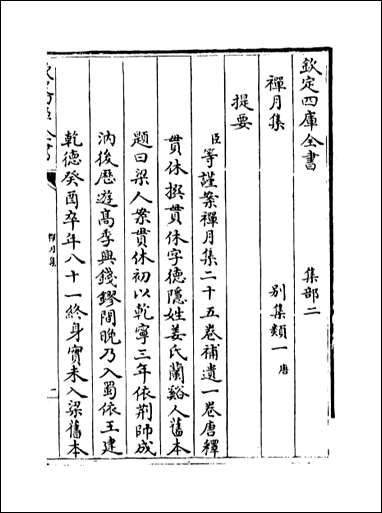 欽定四庫全書 集部二
禪月集 别集類一 唐
提要
臣等謹案禪月集二十五卷補遺一卷唐釋
貫休撰貫休字德隱姓姜氏蘭谿人舊本
題曰梁人案貫休初以乾寧三年依荆帥成
汭後歴遊髙季興錢鏐間晚乃入蜀依王建
乾德癸酉卒年八十一終身實未入梁舊本
禪月集 一